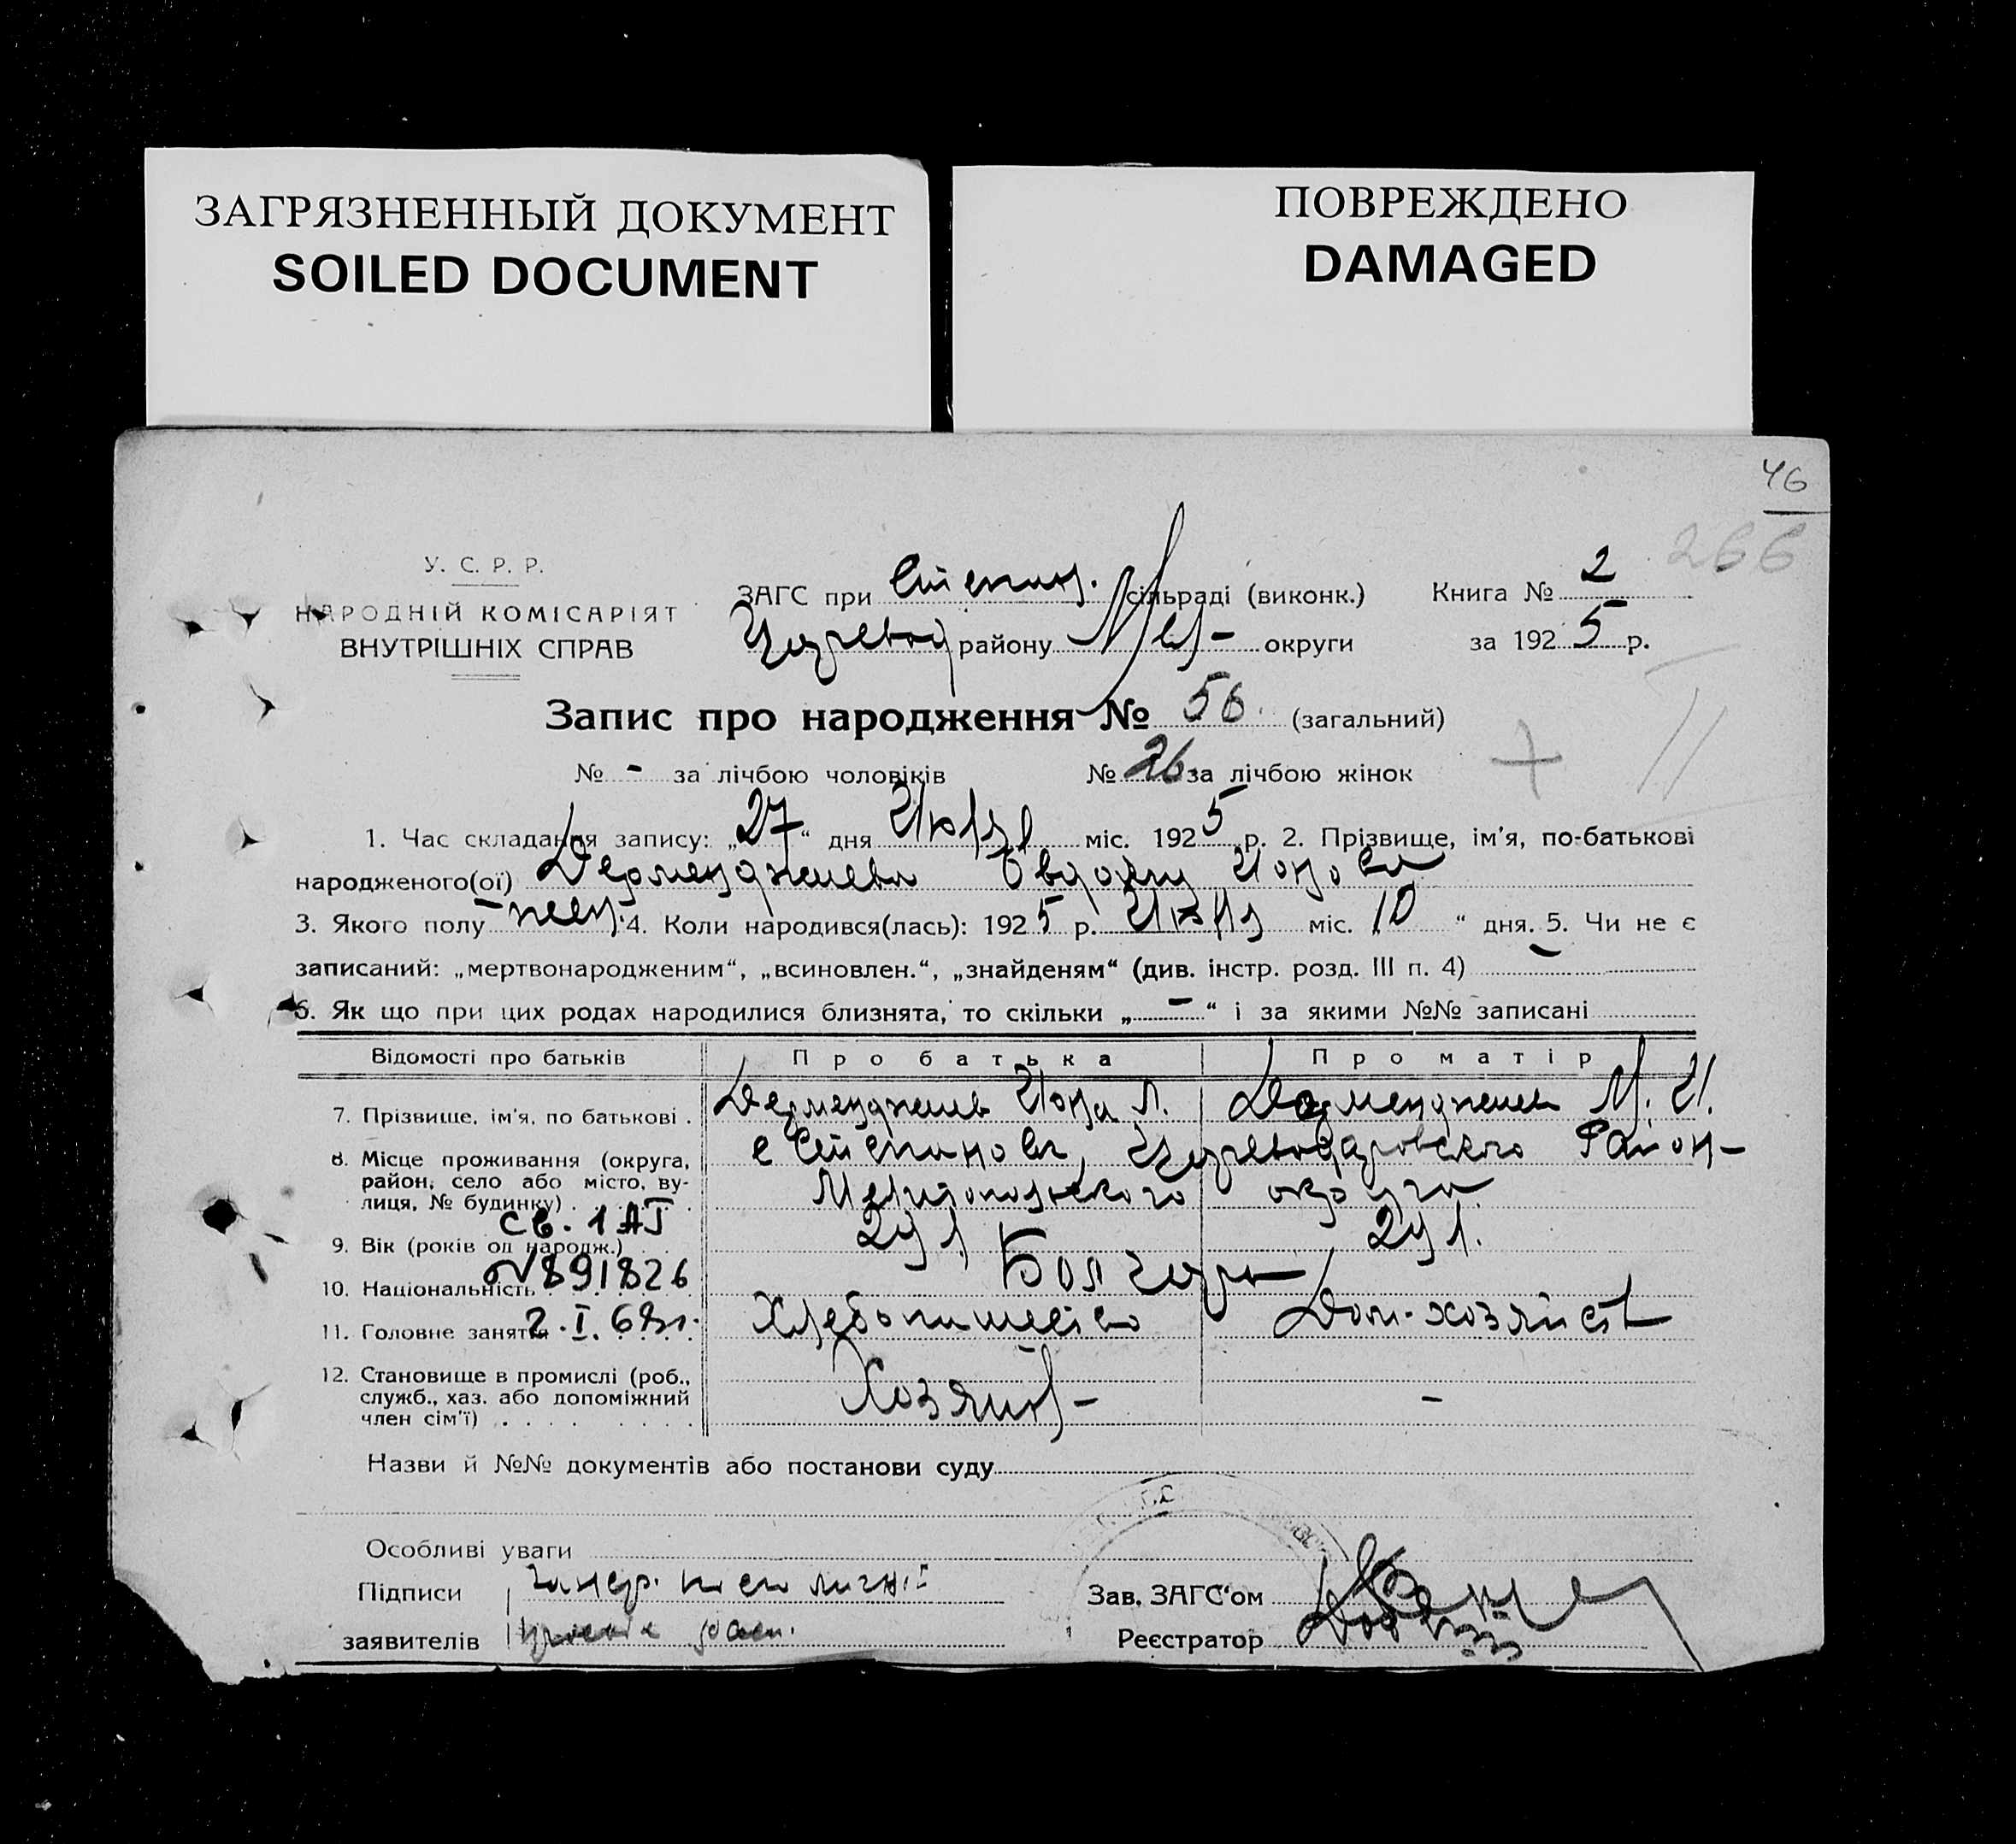 ЗАГРЯЗНЕННЫЙ ДОКУМЕНТ
SOILED DOCUMENT
ПОВРЕЖДЕНО
DAMAGED
46
266
У. С. Р. Р.
НАРОДНІЙ КОМІСАРІЯТ
ВНУТРІШНІХ СПРАВ
ЗАГС при Степан. сільраді (виконк.) Книга № 2
району Мел- округи за 1925 р.
Запис про народження № 56 (загальний)
№ - за лічбою чоловіків № 26 за лічбою жінок
II
1. Час складання запису: „27“ дня міс. 1925 р. 2. Прізвище, ім'я, по-батькові
народженого(ої) Дерменджиева
3. Якого полу жен. 4. Коли народився(лась): 1925 р. міс. „10“ дня. 5. Чи не є
записаний: „мертвонародженим“, „всиновлен.“, „знайденям“ (див. інстр. розд. III п. 4) -
6. Як що при цих родах народилися близнята, то скільки „-“ і за якими №№ записані
Відомості про батьків Про батька Про матір
7. Прізвище, ім'я, по батькові . Дерменджиев Иона Л. Дерменджиева М. И.
8. Місце проживання (округа,
район, село або місто, ву-
лиця, № будинку) . . . .
с Степановка, района
Мелитопольского округа
св. 1 АТ
9. Вік (років од народж.) 29 л. 29 л.
№ 891826
10. Національність . . . . Болгары
11. Головне заняття . . . . Хлебопашество Дом-хозяйст
2.I.68г.
12. Становище в промислі (роб.,
служб., хаз. або допоміжний
член сім'ї) . . . . . Хозяин- -
Назви й №№ документів або постанови суду
Особливі уваги
Підписи
заявителів
Зав. ЗАГС'ом
Реєстратор